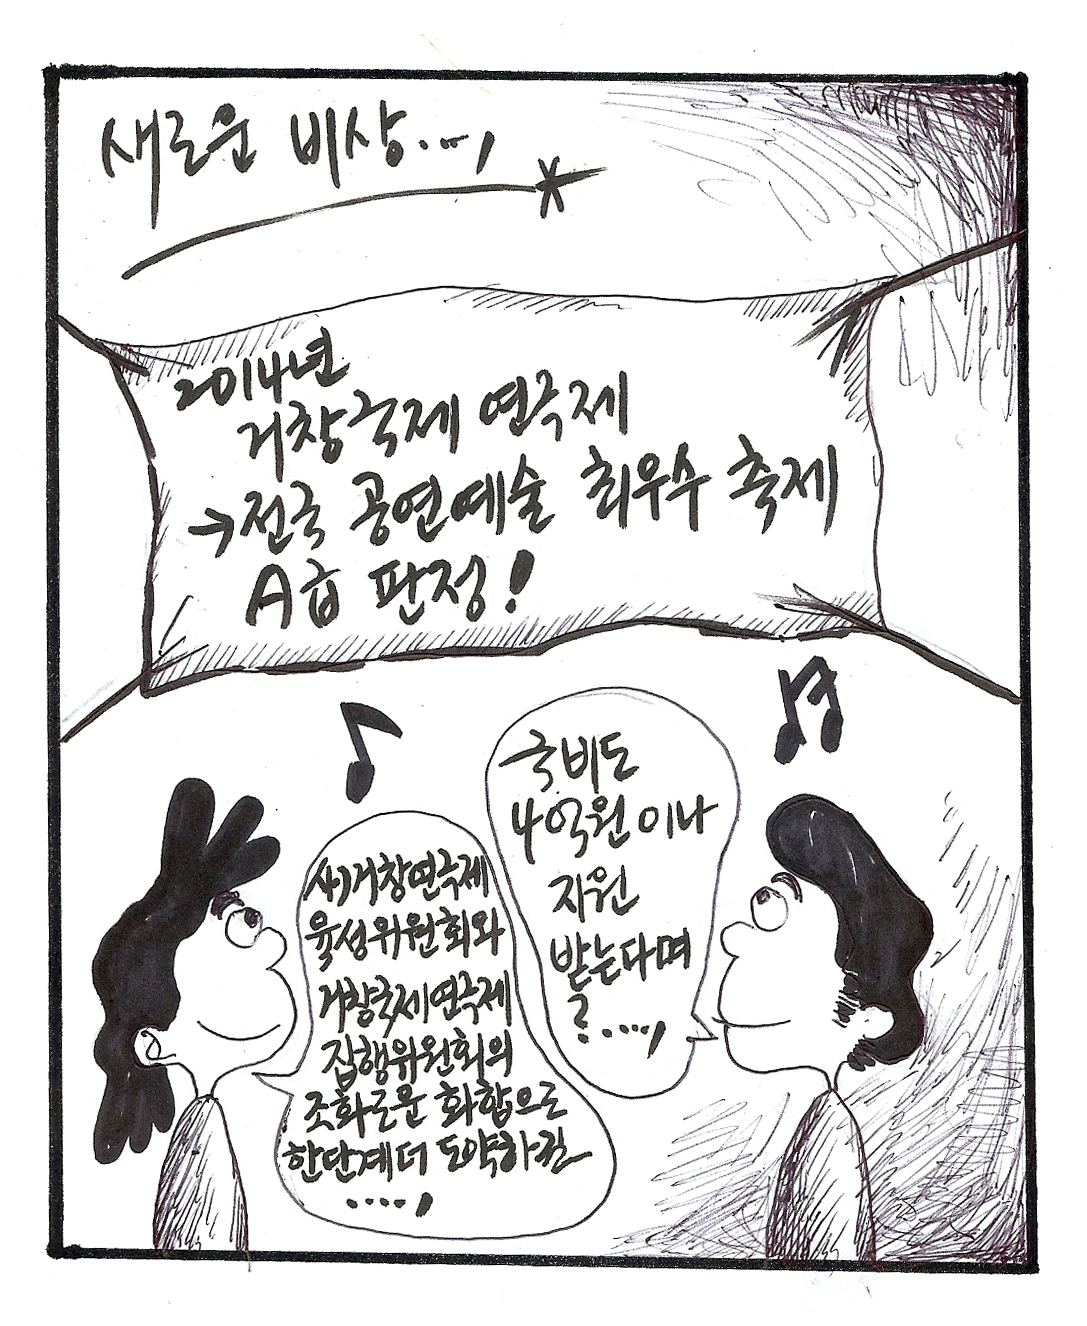 새로운 비상....,
2014년
거창국제 연극제
→전국 공연예술 최우수 축제
A급 판정!
국비도
4억원이나
지원
받는다며
?....,
(사)거창연극제
육성위원회와
거창국제연극제
집행위원회의
조화로운 화합으로
한단계더 도약하길
....,